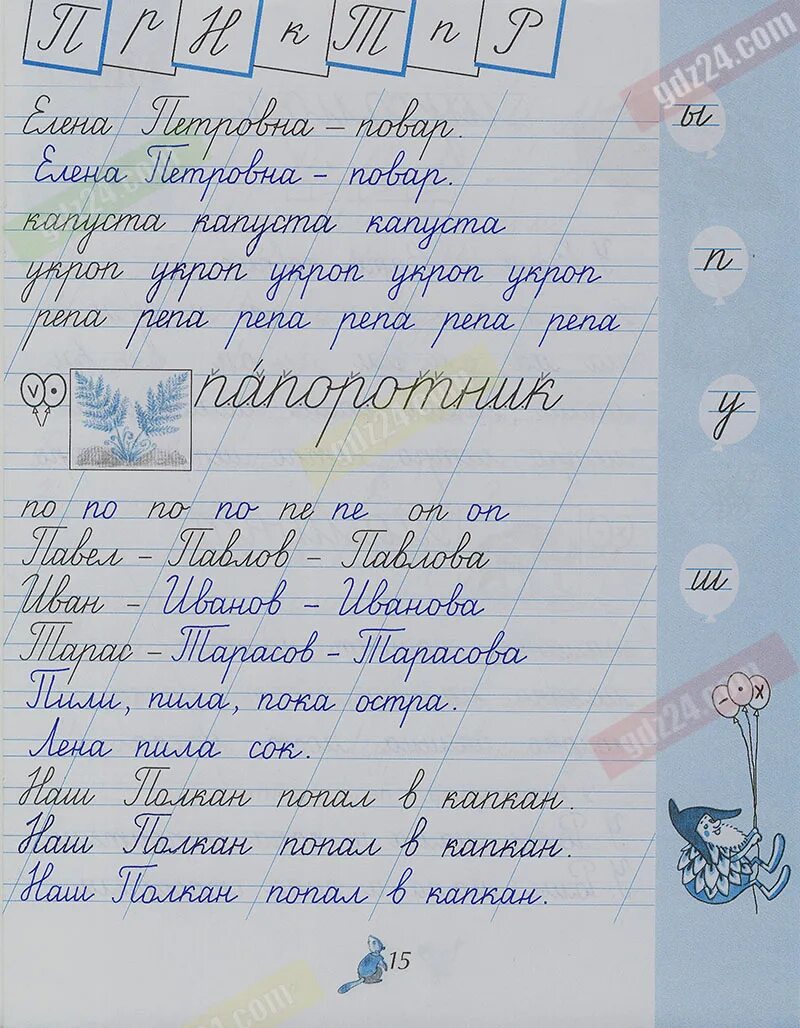 П р Н к Т п Р
gdz24.com
ы
Елена Петровна – повар.
Елена Петровна – повар.
капуста капуста капуста
укроп укроп укроп укроп укроп
п
репа репа репа репа репа репа
папоротник
у
по по по по пе пе оп оп
Павел – Павлов – Павлова
ш
Иван – Иванов – Иванова
Тарас – Тарасов – Тарасова
Пили, пила, пока остра.
Лена пила сок.
Наш Полкан попал в капкан.
Наш Полкан попал в капкан.
Наш Полкан попал в капкан.
15
gdz24.com
gdz24.com
gdz24.com
gdz24.com